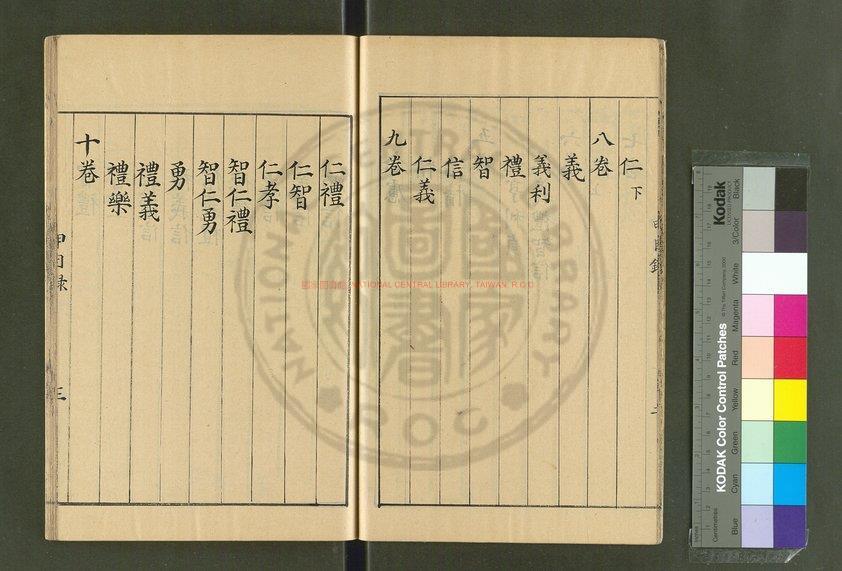 仁下
八卷
義
義利
禮
智
信
仁義
九卷
仁禮
仁智
仁孝
智仁禮
智仁勇
勇
禮義
禮樂
十卷
甲目錄
三
國家圖書館 NATIONAL CENTRAL LIBRARY, TAIWAN, R.O.C
NATIONAL CENTRAL LIBRARY
ROC
國家圖書館
Kodak
KODAK Color Control Patches
Black
3/Color
White
Magenta
Red
Yellow
Green
Cyan
Blue
Centimetres